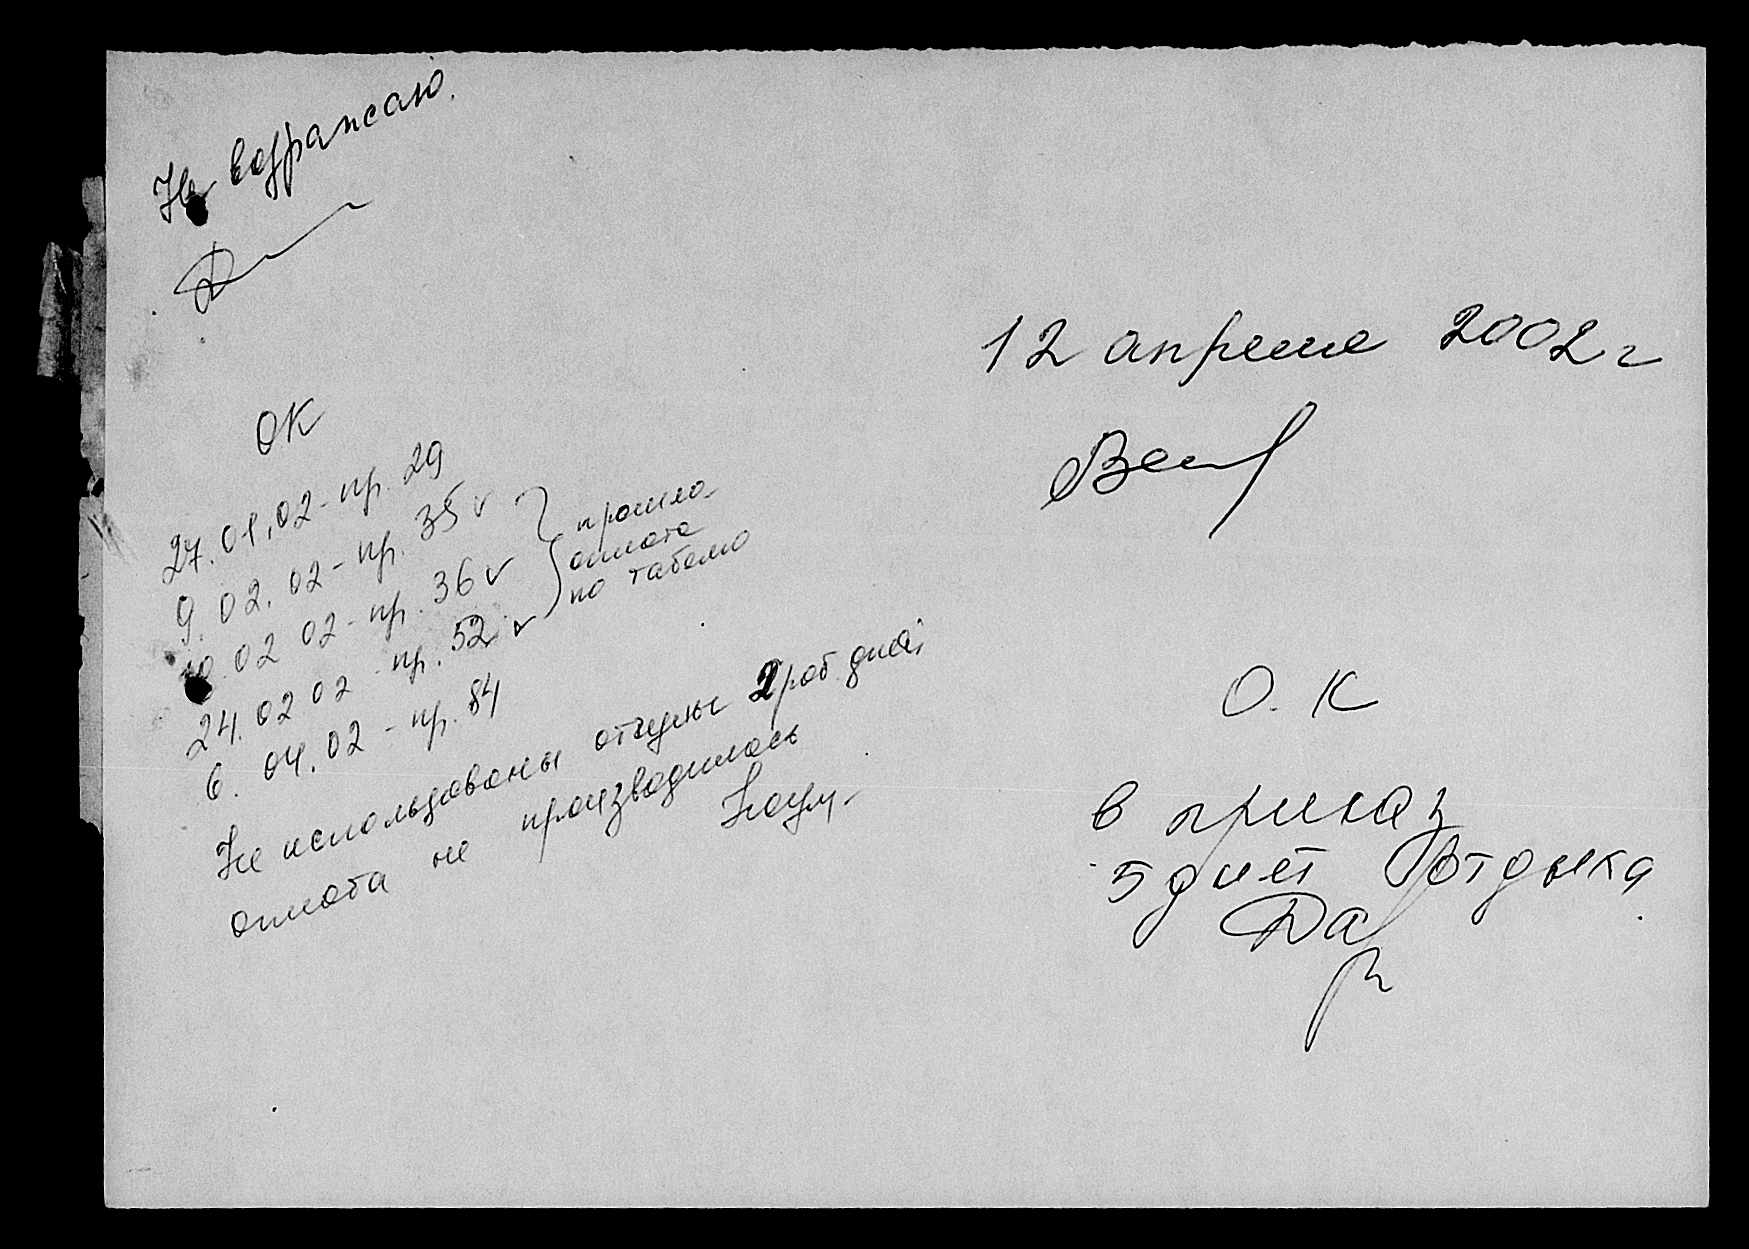 Не возражаю.
ОК
27.01.02 - пр. 29
9.02.02 - пр. 35 ✓
10.02 02 - пр. 36 ✓
24.02 02 - пр. 52 ✓
прошла
оплата
по табелю
6.04.02 - пр. 84
Не использованы отгулы 2 раб. дней,
оплата не производилась
12 апреля 2002 г
О. К
в приказ
5 дней отдыха